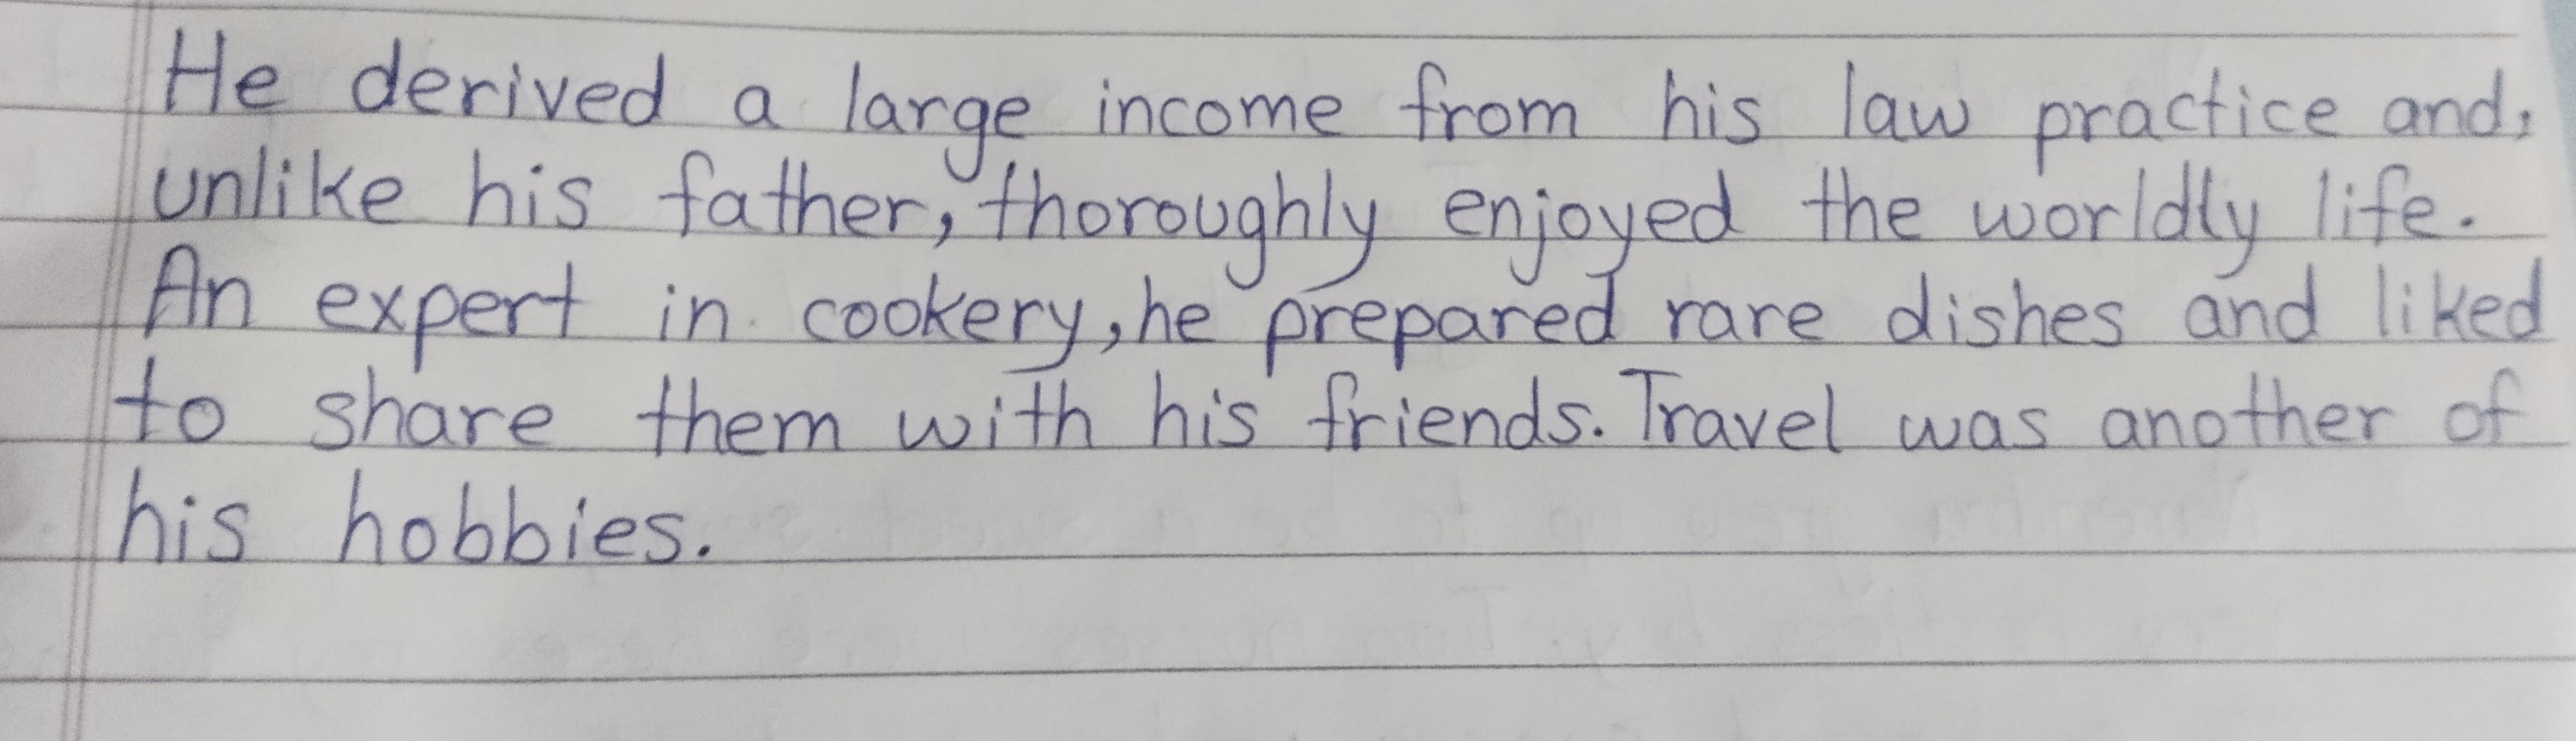 He derived a large income from his law practice and,
unlike his father, thoroughly enjoyed the worldly life.
An expert in cookery, he prepared rare dishes and liked
to share them with his friends. Travel was another of
his hobbies.